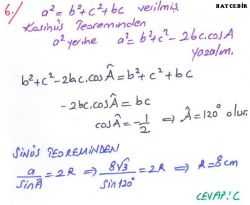 BAYCEBİR
6/ a² = b² + c² + bc verilmiş
Kosinüs Teoreminden
a² yerine a² = b² + c² - 2bc.cosA
yazalım.
b² + c² - 2bc.cosÂ = b² + c² + bc
-2bc.cosÂ = bc
cosÂ = -1/2 ⇒ Â = 120° olur.
SİNÜS TEOREMİNDEN
a/sinA = 2R ⇒ 8√3/sin120° = 2R ⇒ R = 8cm
CEVAP: C